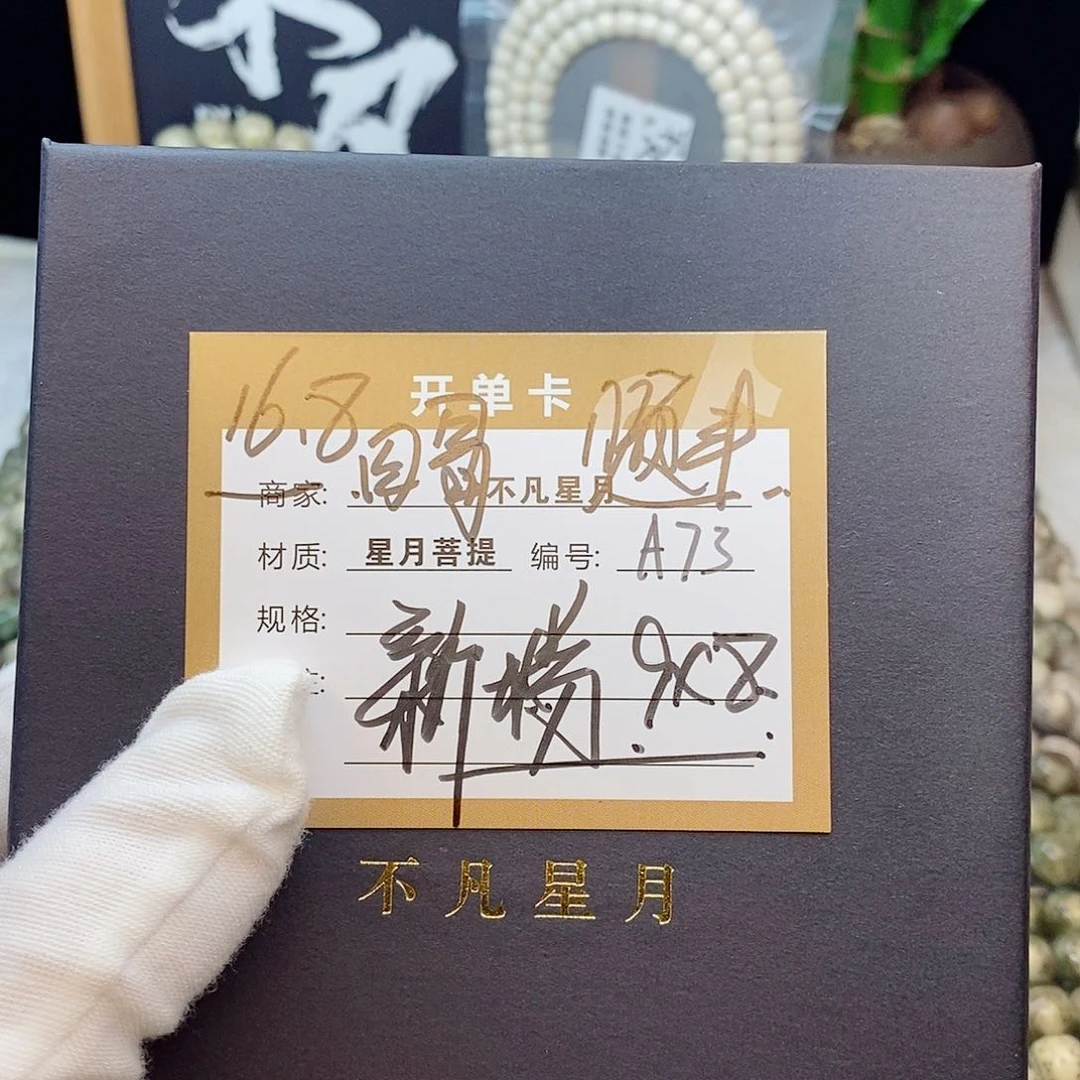 不凡
开单卡
16.8 顺丰
商家: 不凡星月
材质: 星月菩提 编号: A73
规格:
新 9x8
不凡星月